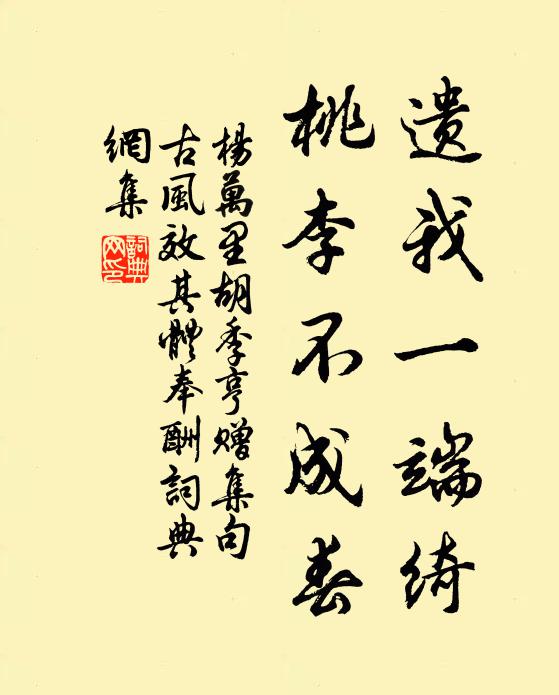 遗我一端绮
桃李不成春
楊萬里胡季亨赠集句
古風效其體奉酬詞典
網集
詞典網印